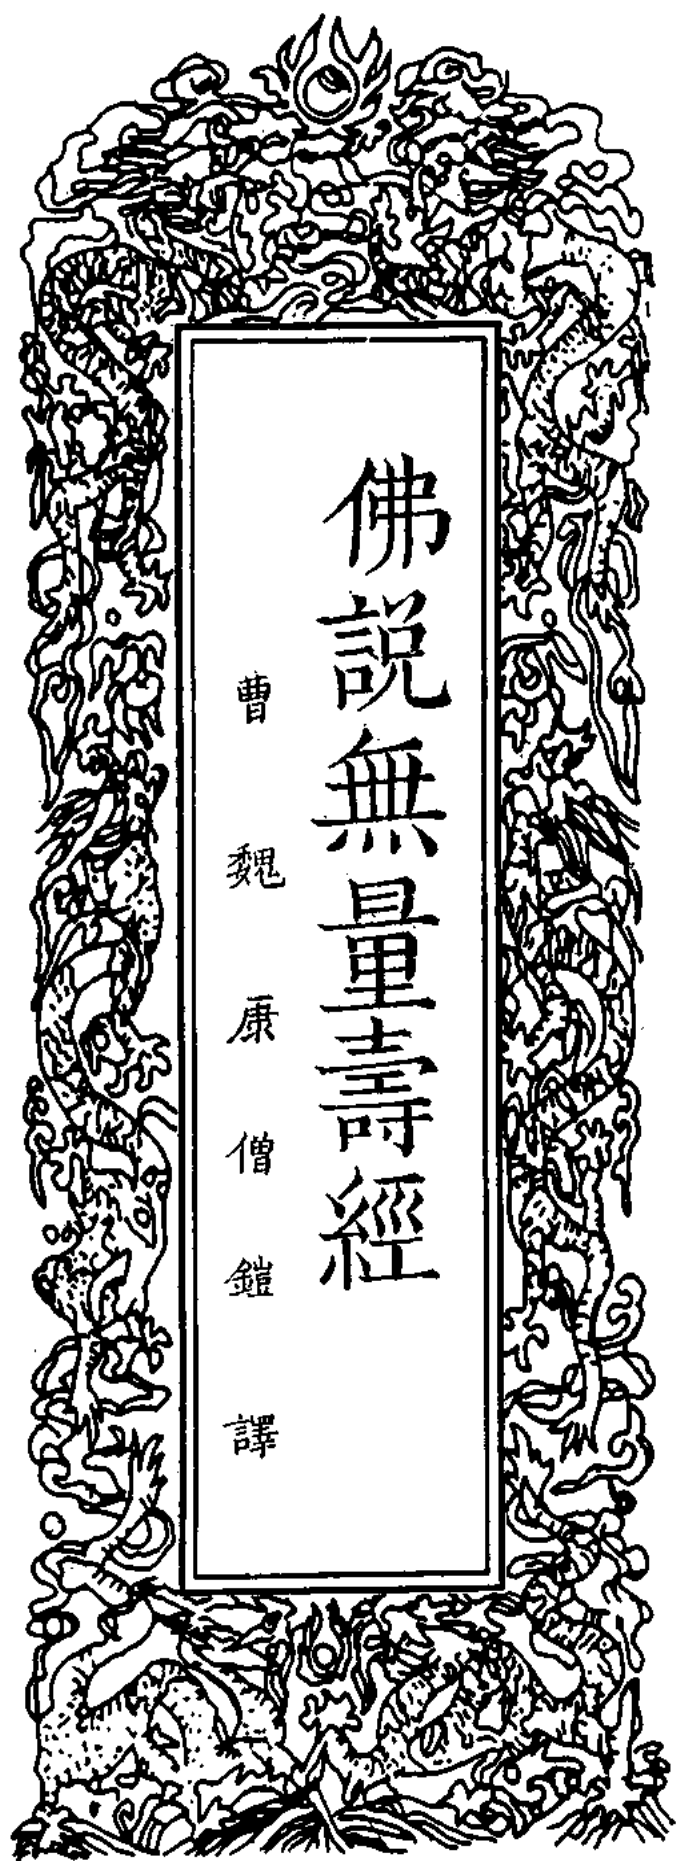 佛説無量壽經
曹魏康僧鎧譯